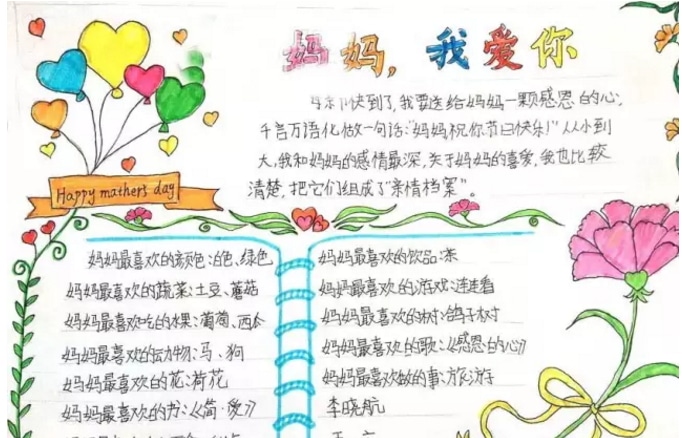 妈妈，我爱你
快到了，我要送给妈妈一颗感恩的心，
千言万语化做一句话：“妈妈祝你节日快乐！”从小到
大，我和妈妈的感情最深，关于妈妈的喜爱，我也比较
清楚，把它们组成了“亲情档案”。
Happy mathers day
妈妈最喜欢的颜色：白色、绿色
妈妈最喜欢的蔬菜：土豆、蘑菇
妈妈最喜欢吃的水果：葡萄、西瓜
妈妈最喜欢的动物：马、狗
妈妈最喜欢的花：荷花
妈妈最喜欢的书：《简·爱》
妈妈最喜欢的饮品：茶
妈妈最喜欢的游戏：连连看
妈妈最喜欢的树：鸽子树
妈妈最喜欢的歌：《感恩的心》
妈妈最喜欢做的事：旅游
李晓航